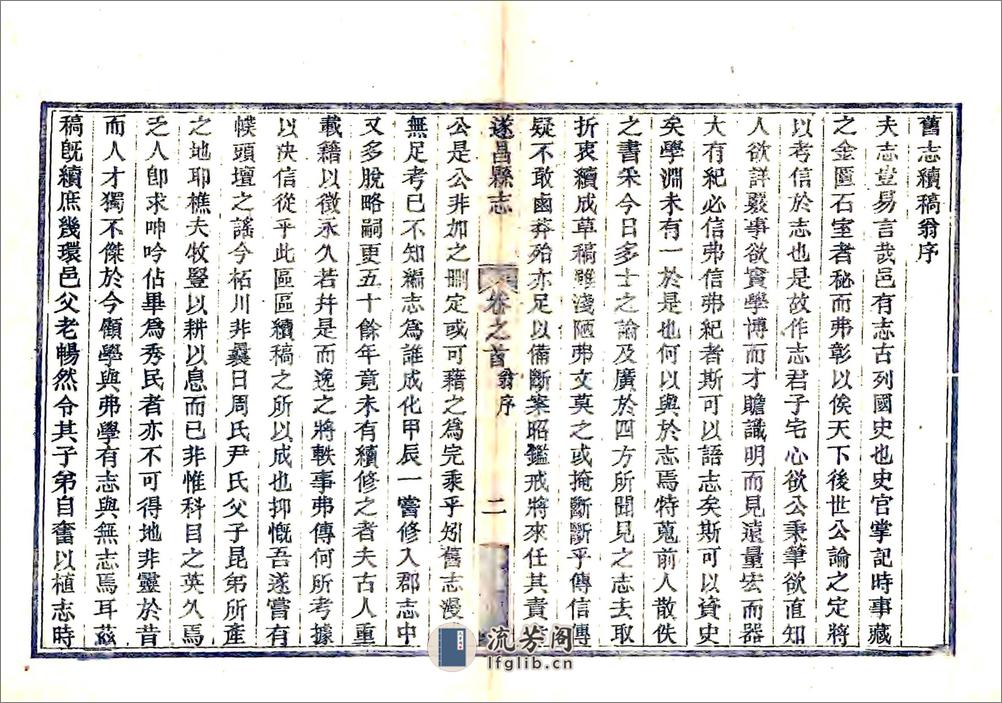 舊志續稿翁序
夫志豈易言哉邑有志古列國史也史官掌記時事藏
之金匱石室者秘而弗彰以俟天下後世公論之定將
以考信於志也是故作志君子宅心欲公秉筆欲直知
人欲詳覈事欲實學博而才贍識明而見遠量宏而器
大有紀必信弗信弗紀者斯可以語志矣斯可以資史
矣學淵未有一於是也何以與於志焉特蒐前人散佚
之書采今日多士之論及廣於四方所聞見之志去取
折衷續成草稿雖淺陋弗文莫之或掩斷斷乎傳信傳
疑不敢鹵莽殆亦足以備斷案昭鑑戒將來任其責者
遂昌縣志
卷之首
翁序
二
公是公非加之刪定或可藉之為完乘乎矧舊志漫
無足考已不知編志為誰成化甲辰一嘗修入郡志中
又多脫略嗣更五十餘年竟未有續修之者夫古人重
載籍以徵永久若幷是而逸之將軼事弗傳何所考據
以決信從乎此區區續稿之所以成也抑慨吾遂嘗有
幞頭壇之謠今柘川非曩日周氏尹氏父子昆弟所產
之地耶樵夫牧豎以耕以息而已非惟科目之英久焉
乏人卽求呻吟佔畢為秀民者亦不可得地非靈於昔
而人才獨不傑於今顧學與弗學有志與無志焉耳茲
稿旣續庶幾環邑父老暢然令其子弟自奮以植志時
流芳閣
lfglib.cn